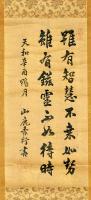 雖有智慧不乗如勢
雖有鎡基不如待時
天和辛酉陽月 山鹿素行書